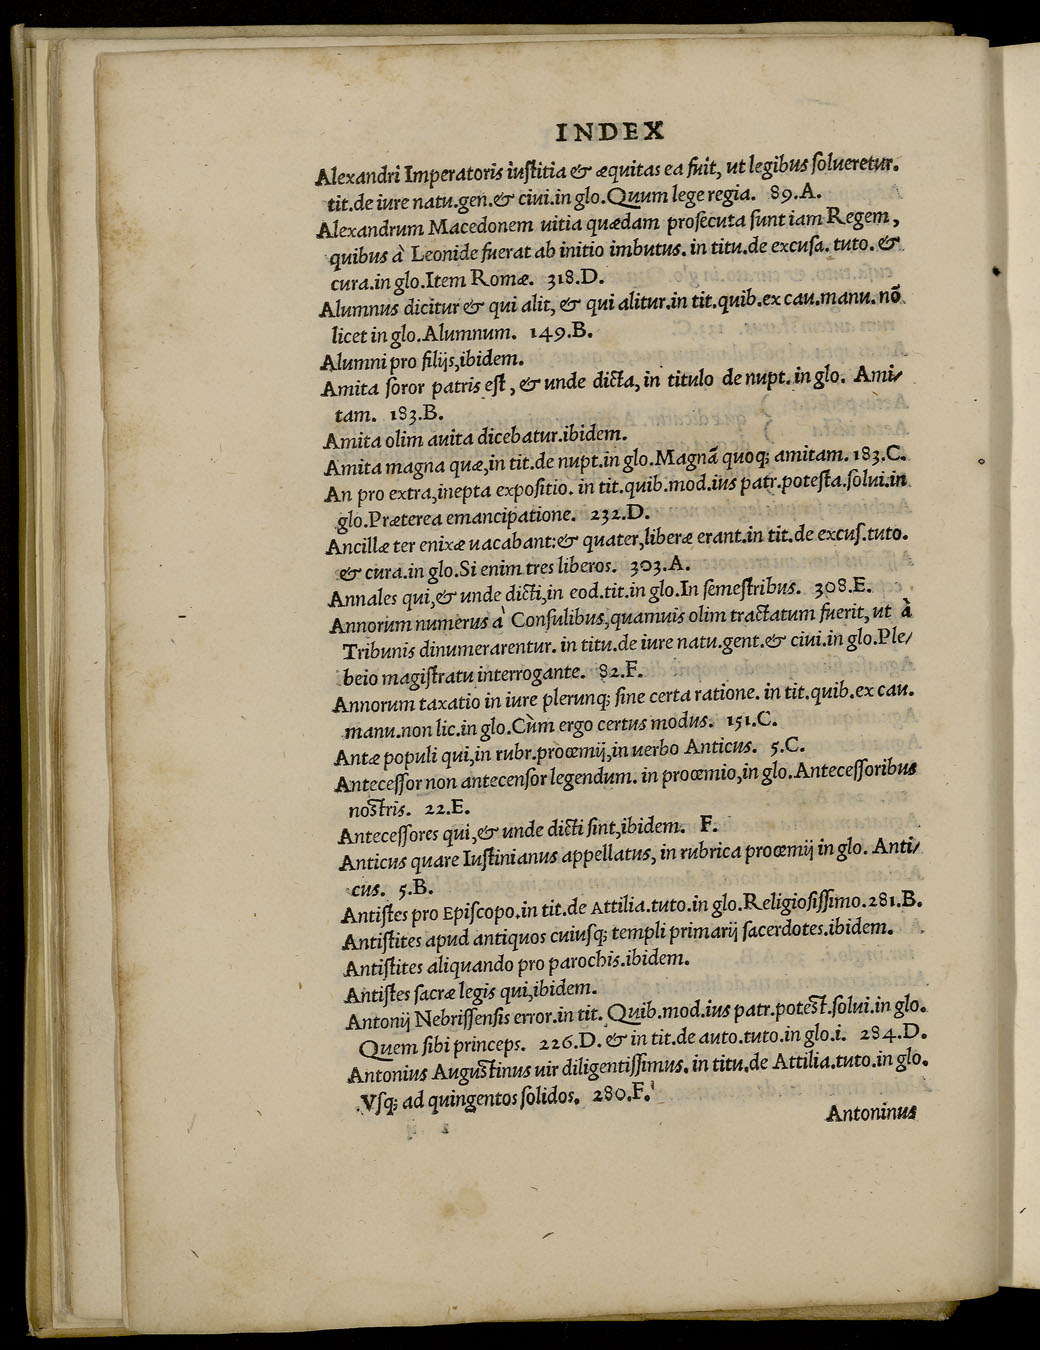 INDEX
Alexandri Imperatoris iuſtitia & æquitas ea fuit, ut legibus ſolueretur.
tit.de iure natu.gen.& ciui.in glo.Quum lege regia. 89.A.
Alexandrum Macedonem uitia quædam proſecuta ſunt iam Regem,
quibus à Leonide fuerat ab initio imbutus. in titu.de excuſa. tuto. &
cura.in glo.Item Romæ. 318.D.
Alumnus dicitur & qui alit, & qui alitur.in tit.quib.ex cau.manu. nõ
licet in glo.Alumnum. 149.B.
Alumni pro filijs,ibidem.
Amita ſoror patris eſt, & unde dicta, in titulo de nupt. in glo. Ami/
tam. 183.B.
Amita olim auita dicebatur.ibidem.
Amita magna quæ,in tit.de nupt.in glo.Magnã quoq; amitam. 183.C.
An pro extra,inepta expoſitio. in tit.quib.mod.ius patr.poteſta.ſolui.in
glo.Præterea emancipatione. 232.D.
Ancillæ ter enixæ uacabant:& quater,liberæ erant.in tit.de excuſ.tuto.
& cura.in glo.Si enim tres liberos. 303.A.
Annales qui,& unde dicti,in eod.tit.in glo.In ſemeſtribus. 308.E.
Annorum numerus à Conſulibus,quamuis olim tractatum fuerit, ut à
Tribunis dinumerarentur. in titu.de iure natu.gent.& ciui.in glo.Ple/
beio magiſtratu interrogante. 82.F.
Annorum taxatio in iure plerunq; ſine certa ratione. in tit.quib.ex cau.
manu.non lic.in glo.Cùm ergo certus modus. 151.C.
Antæ populi qui,in rubr.proœmij,in uerbo Anticus. 5.C.
Anteceſſor non antecenſor legendum. in proœmio,in glo.Anteceſſoribus
noſtris. 22.E.
Anteceſſores qui,& unde dicti ſint,ibidem. F.
Anticus quare Iuſtinianus appellatus, in rubrica proœmij in glo. Anti/
cus. 5.B.
Antiſtes pro Epiſcopo.in tit.de Attilia.tuto.in glo.Religioſiſſimo.281.B.
Antiſtites apud antiquos cuiuſq; templi primarij ſacerdotes.ibidem.
Antiſtites aliquando pro parochis.ibidem.
Antiſtes ſacræ legis qui,ibidem.
Antonij Nebriſſenſis error.in tit. Quib.mod.ius patr.poteſt.ſolui.in glo.
Quem ſibi princeps. 226.D. & in tit.de auto.tuto.in glo.i. 284.D.
Antonius Auguſtinus uir diligentiſſimus. in titu.de Attilia.tuto.in glo.
Vſq; ad quingentos ſolidos. 280.F.
Antoninus